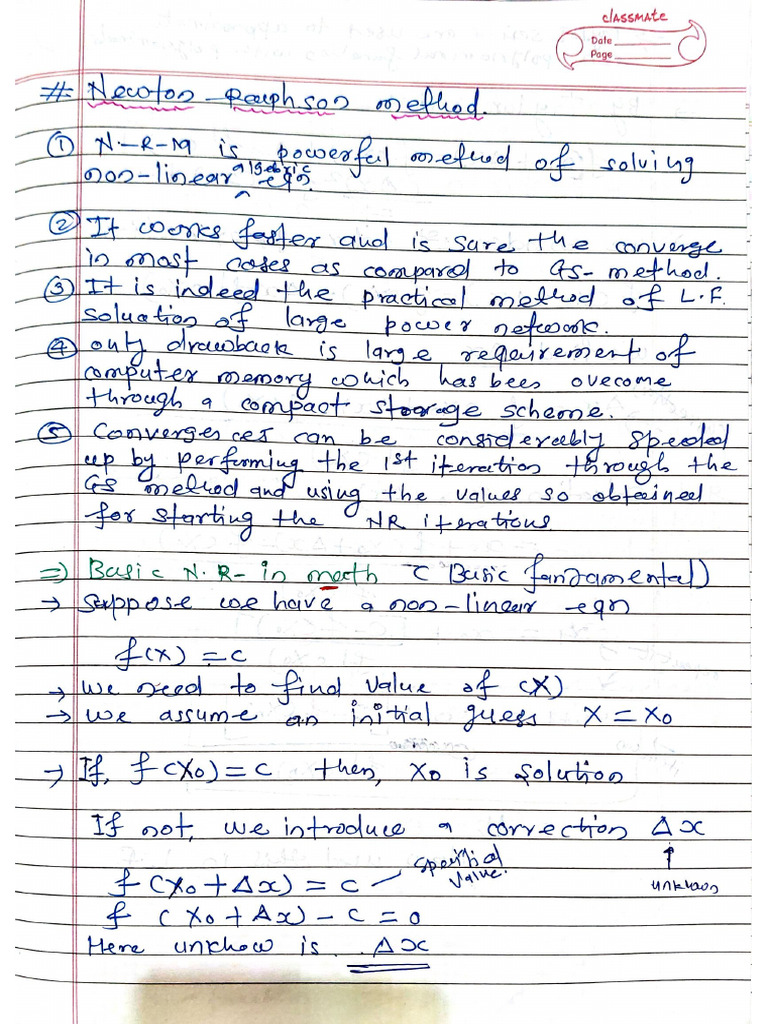 classmate
Date
Page
# Newton-Raphson method.
① N-R-M is powerful method of solving
non-linear algebric eqn.
② It works faster and is sure the converge
in most cases as compared to GS-method.
③ It is indeed the practical method of L.F.
soluation of large power network.
④ only drawback is large requirement of
computer memory which has been ovecome
through a compact storage scheme.
⑤ Convergences can be considerably speeded
up by performing the 1st iteration through the
GS method and using the values so obtained
for starting the NR iterations
⇒ Basic N.R- in math (Basic fundamental)
→ suppose we have a non-linear eqn
f(x) = c
→ we need to find value of (x)
→ we assume an initial guess X = X0
→ If, f(X0) = c then, X0 is solution
If not, we introduce a correction Δx
f(X0 + Δx) = c specified value.
unknown
f (X0 + Δx) - c = 0
Here unknow is Δx